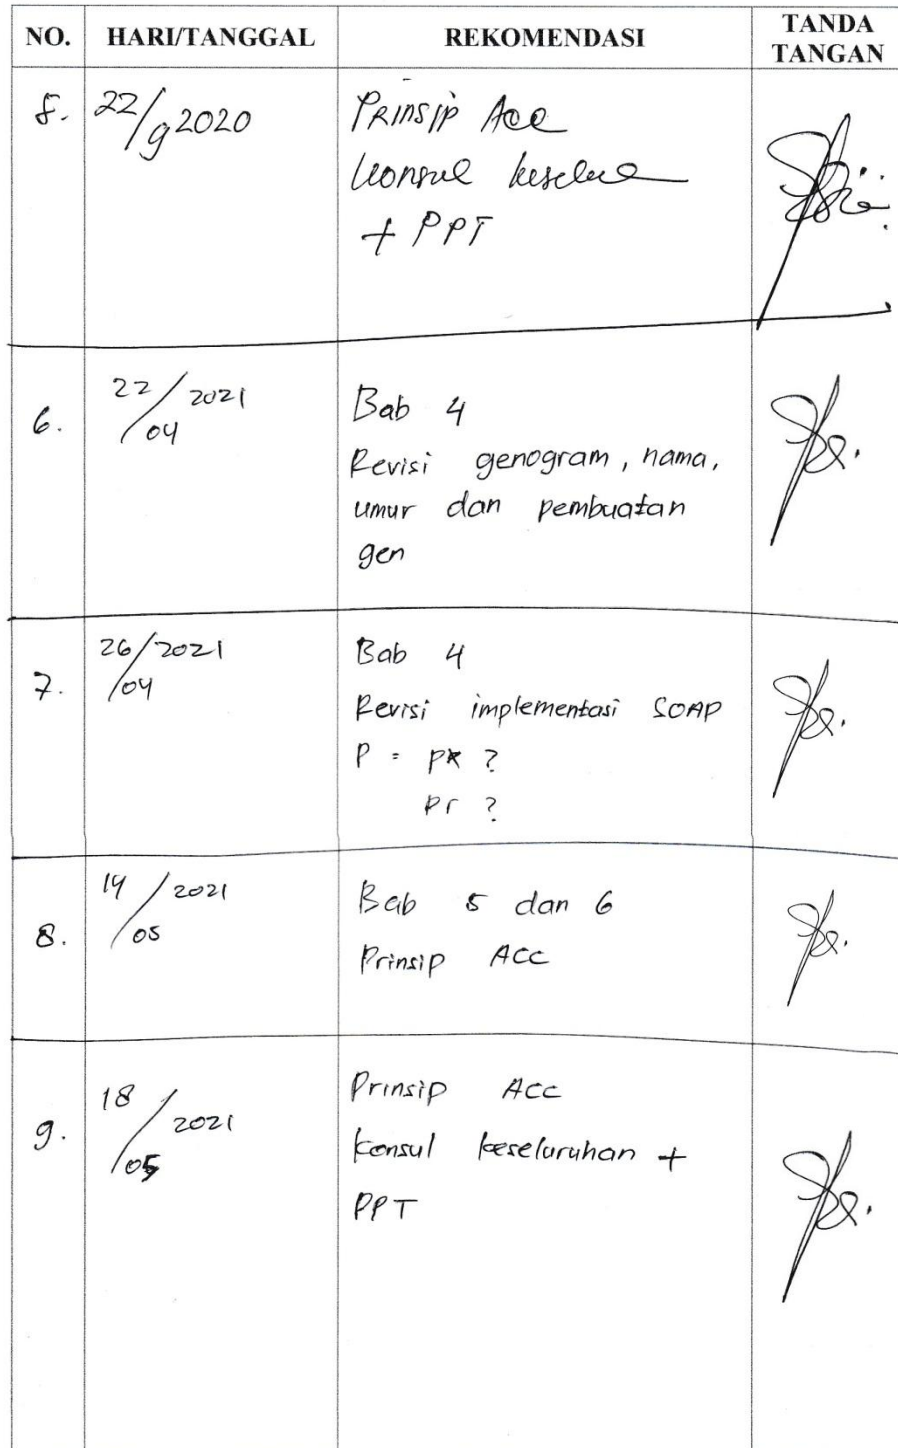 NO. HARI/TANGGAL REKOMENDASI TANDA TANGAN
5. 22/9 2020 Prinsip Acc
Konsul
+ PPT
6. 22/04 2021 Bab 4
Revisi genogram, nama,
umur dan pembuatan
gen
7. 26/04 2021 Bab 4
Revisi implementasi SOAP
P = px ?
pr ?
8. 14/05 2021 Bab 5 dan 6
Prinsip ACC
9. 18/05 2021 Prinsip ACC
Konsul keseluruhan +
PPT